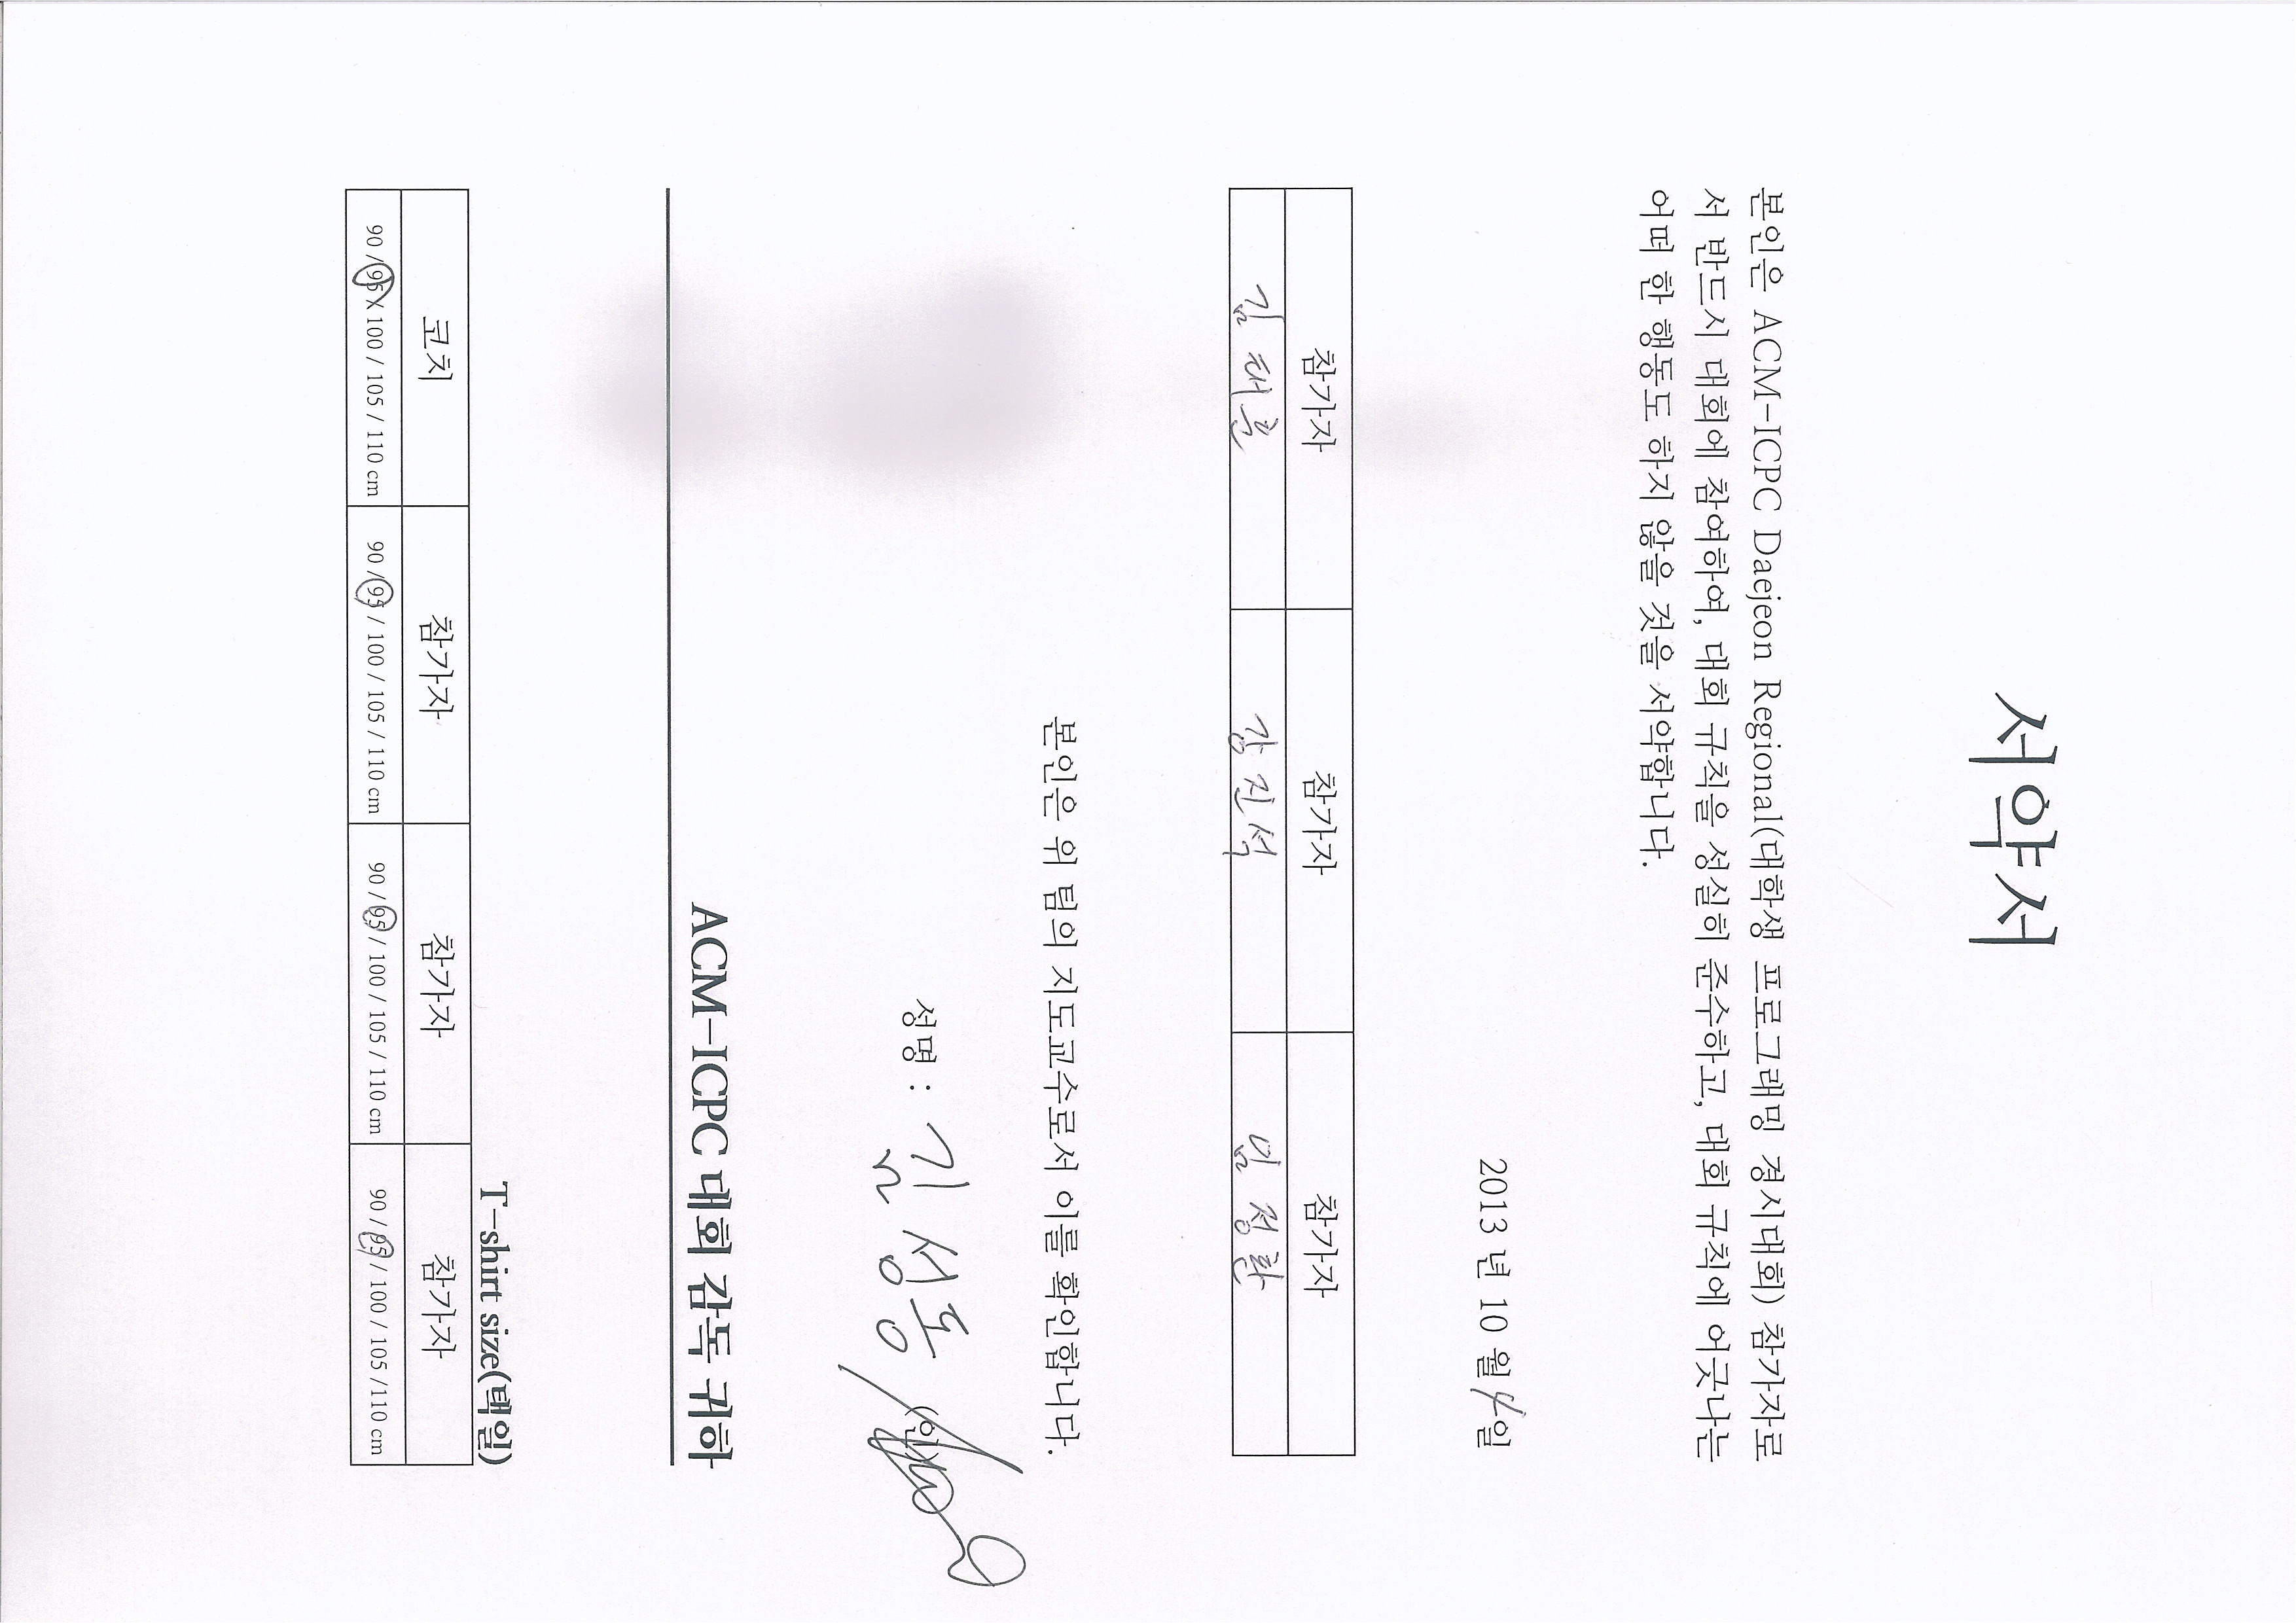 서약서
본인은 ACM-ICPC Daejeon Regional(대학생 프로그래밍 경시대회) 참가자로
서 반드시 대회에 참여하여, 대회 규칙을 성실히 준수하고, 대회 규칙에 어긋나는
어떠 한 행동도 하지 않을 것을 서약합니다.
2013 년 10 월 4일
참가자 참가자 참가자
김 태훈 강 진석 임 정환
본인은 위 팀의 지도교수로서 이를 확인합니다.
성명 : 김 성동 (인)
ACM-ICPC 대회 감독 귀하
T-shirt size(택일)
코치 참가자 참가자 참가자
90 / 95 / 100 / 105 / 110 cm 90 / 95 / 100 / 105 / 110 cm 90 / 95 / 100 / 105 / 110 cm 90 / 95 / 100 / 105 /110 cm